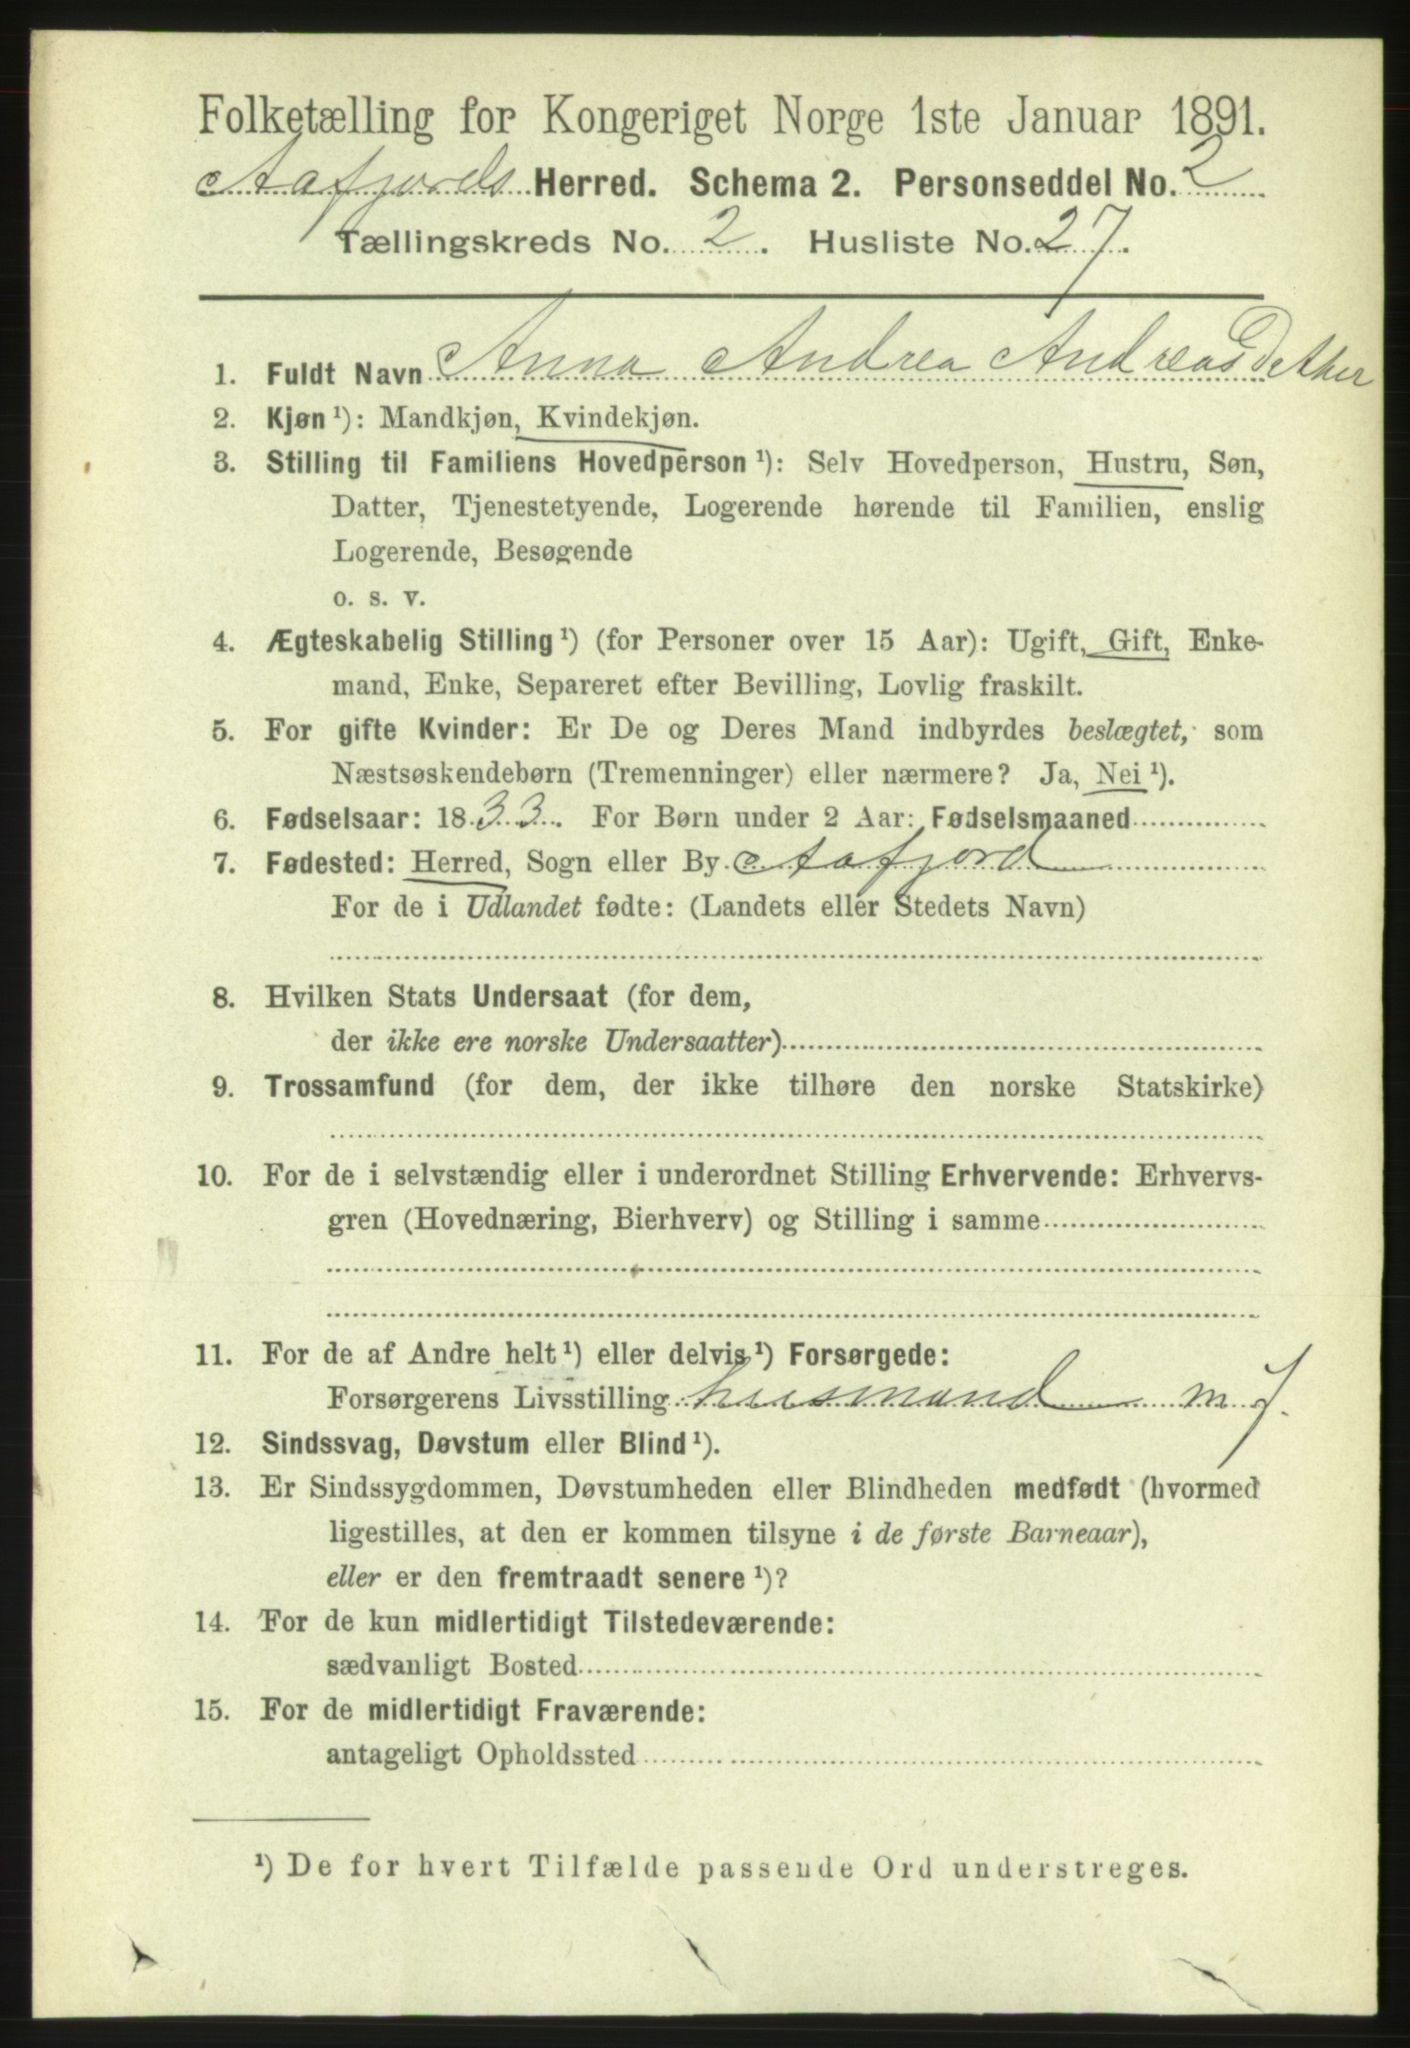 Folketælling for Kongeriget Norge 1ste Januar 1891.
Aafjords Herred. Schema 2. Personseddel No. 2
Tællingskreds No. 2. Husliste No. 27.
1. Fuldt Navn Anna Andrea Andreasdatter
2. Kjøn ¹): Mandkjøn, Kvindekjøn.
3. Stilling til Familiens Hovedperson ¹): Selv Hovedperson, Hustru, Søn,
Datter, Tjenestetyende, Logerende hørende til Familien, enslig
Logerende, Besøgende
o. s. v.
4. Ægteskabelig Stilling ¹) (for Personer over 15 Aar): Ugift, Gift, Enke-
mand, Enke, Separeret efter Bevilling, Lovlig fraskilt.
5. For gifte Kvinder: Er De og Deres Mand indbyrdes beslægtet, som
Næstsøskendebørn (Tremenninger) eller nærmere? Ja, Nei ¹).
6. Fødselsaar: 1833. For Børn under 2 Aar: Fødselsmaaned
7. Fødested: Herred, Sogn eller By Aafjord
For de i Udlandet fødte: (Landets eller Stedets Navn)
8. Hvilken Stats Undersaat (for dem,
der ikke ere norske Undersaatter)
9. Trossamfund (for dem, der ikke tilhøre den norske Statskirke)
10. For de i selvstændig eller i underordnet Stilling Erhvervende: Erhvervs-
gren (Hovednæring, Bierhverv) og Stilling i samme
11. For de af Andre helt ¹) eller delvis ¹) Forsørgede:
Forsørgerens Livsstilling husmand m J.
12. Sindssvag, Døvstum eller Blind ¹).
13. Er Sindssygdommen, Døvstumheden eller Blindheden medfødt (hvormed
ligestilles, at den er kommen tilsyne i de første Barneaar),
eller er den fremtraadt senere ¹)?
14. For de kun midlertidigt Tilstedeværende:
sædvanligt Bosted
15. For de midlertidigt Fraværende:
antageligt Opholdssted
¹) De for hvert Tilfælde passende Ord understreges.